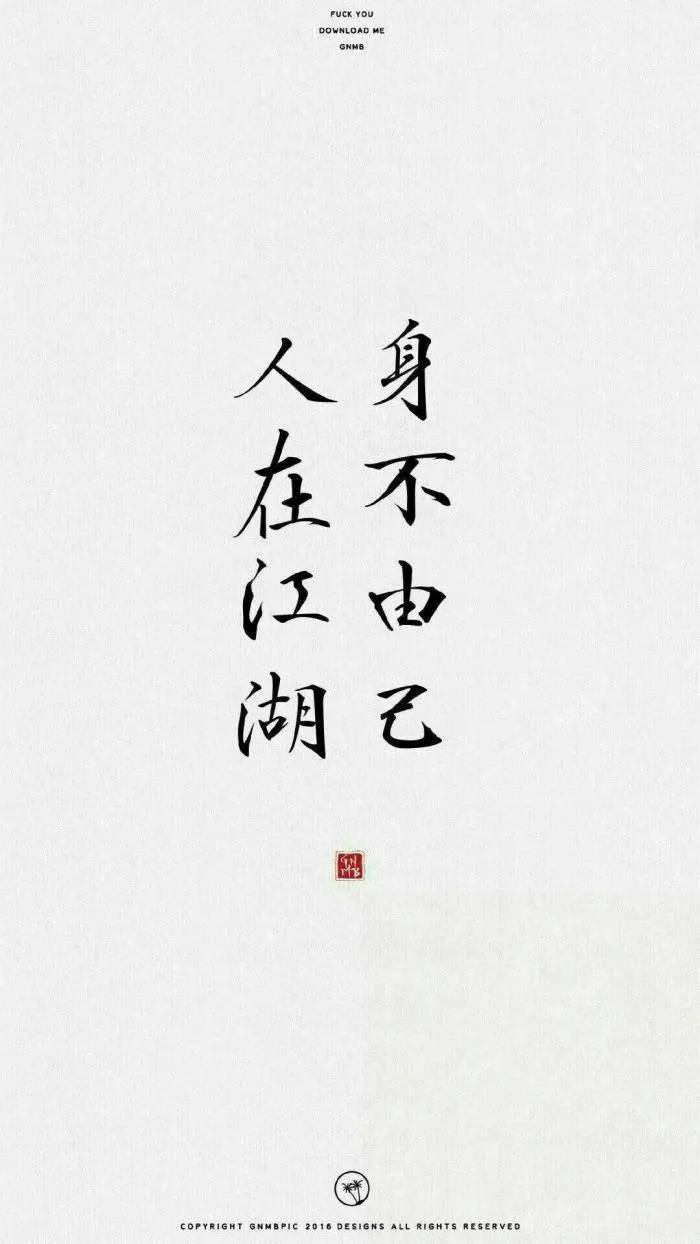 FUCK YOU
DOWNLOAD ME
GNMB
人在江湖
身不由己
GN
MB
COPYRIGHT GNMBPIC 2016 DESIGNS ALL RIGHTS RESERVED